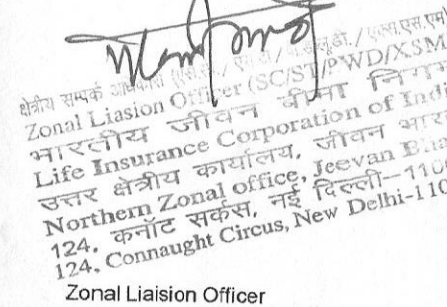 क्षेत्रीय सम्पर्क
Zonal Liasion Officer (SC/ST/PWD/XSM
भारतीय जीवन बीमा निगम
Life Insurance Corporation of Indi
उत्तर क्षेत्रीय कार्यालय, जीवन भार
Northern Zonal office, Jeevan Bha
124, कनॉट सर्कस, नई दिल्ली–110
124, Connaught Circus, New Delhi-110
Zonal Liaision Officer